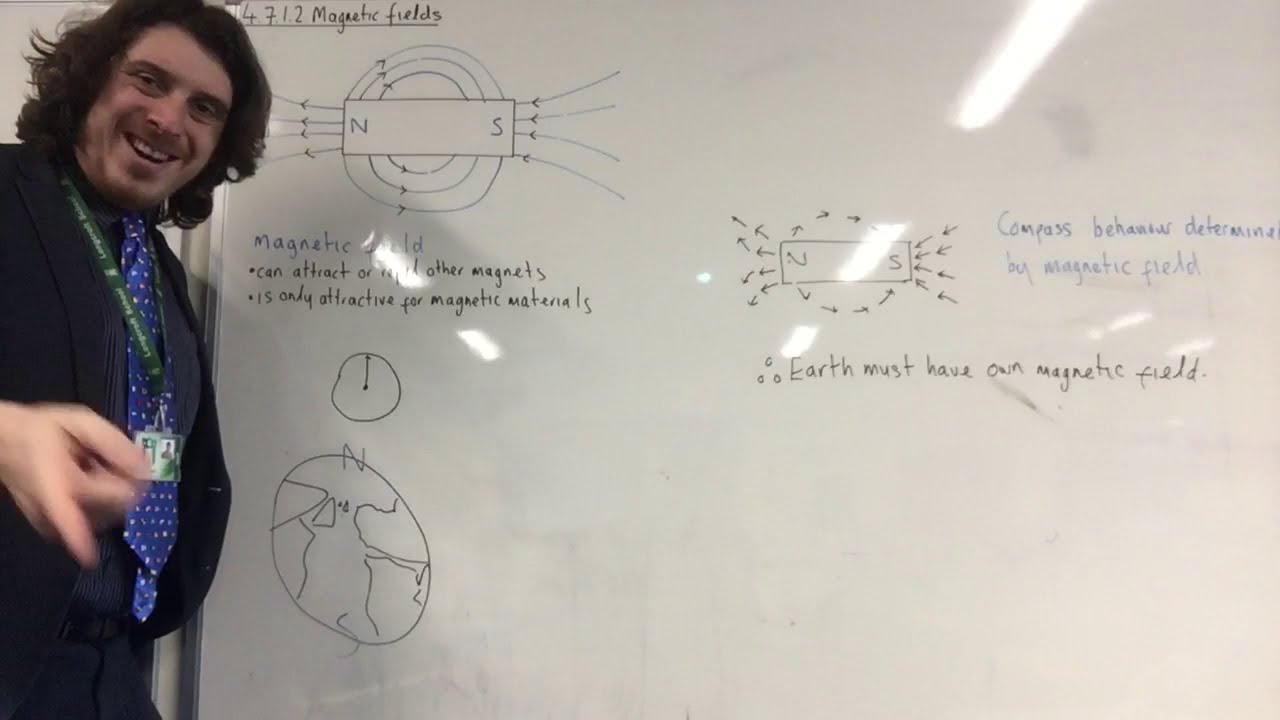 4.7.1.2 Magnetic fields
N S
magnetic field
•can attract or repel other magnets
•is only attractive for magnetic materials
N
N S
Compass behaviour determine
by magnetic field
∴ Earth must have own magnetic field.